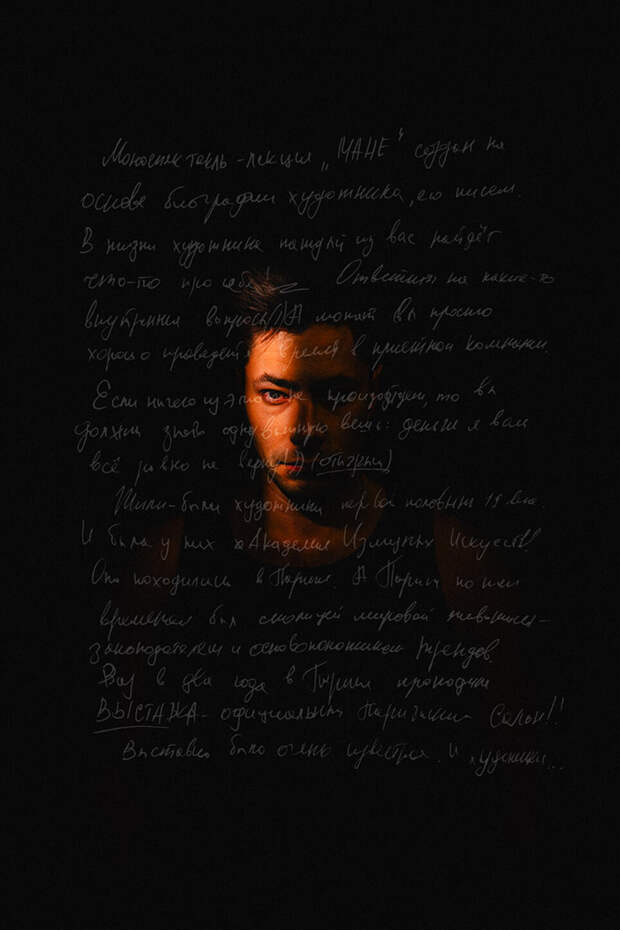 Моноспектакль-лекция „МАНЕ" создан на
основе биографии художника, его писем.
В жизни художника каждый из вас найдёт
что-то про себя! Ответит на какие-то
внутренние вопросы)) А может Вы просто
хорошо проведёте время в приятной компании.
Если ничего из этого не произойдёт, то вы
должны знать одну важную вещь: деньги я вам
всё равно не верну)) (отыграл)
Жили-были художники первой половины 19 века.
И была у них Академия Изящных Искусств!
Она находилась в Париже. А Париж по тем
временам был столицей мировой живописи-
законодателем и основоположником трендов.
Раз в два года в Париже проходила
ВЫСТАВКА- официальный Парижский Салон!!
Выставка была очень известна. И художники...